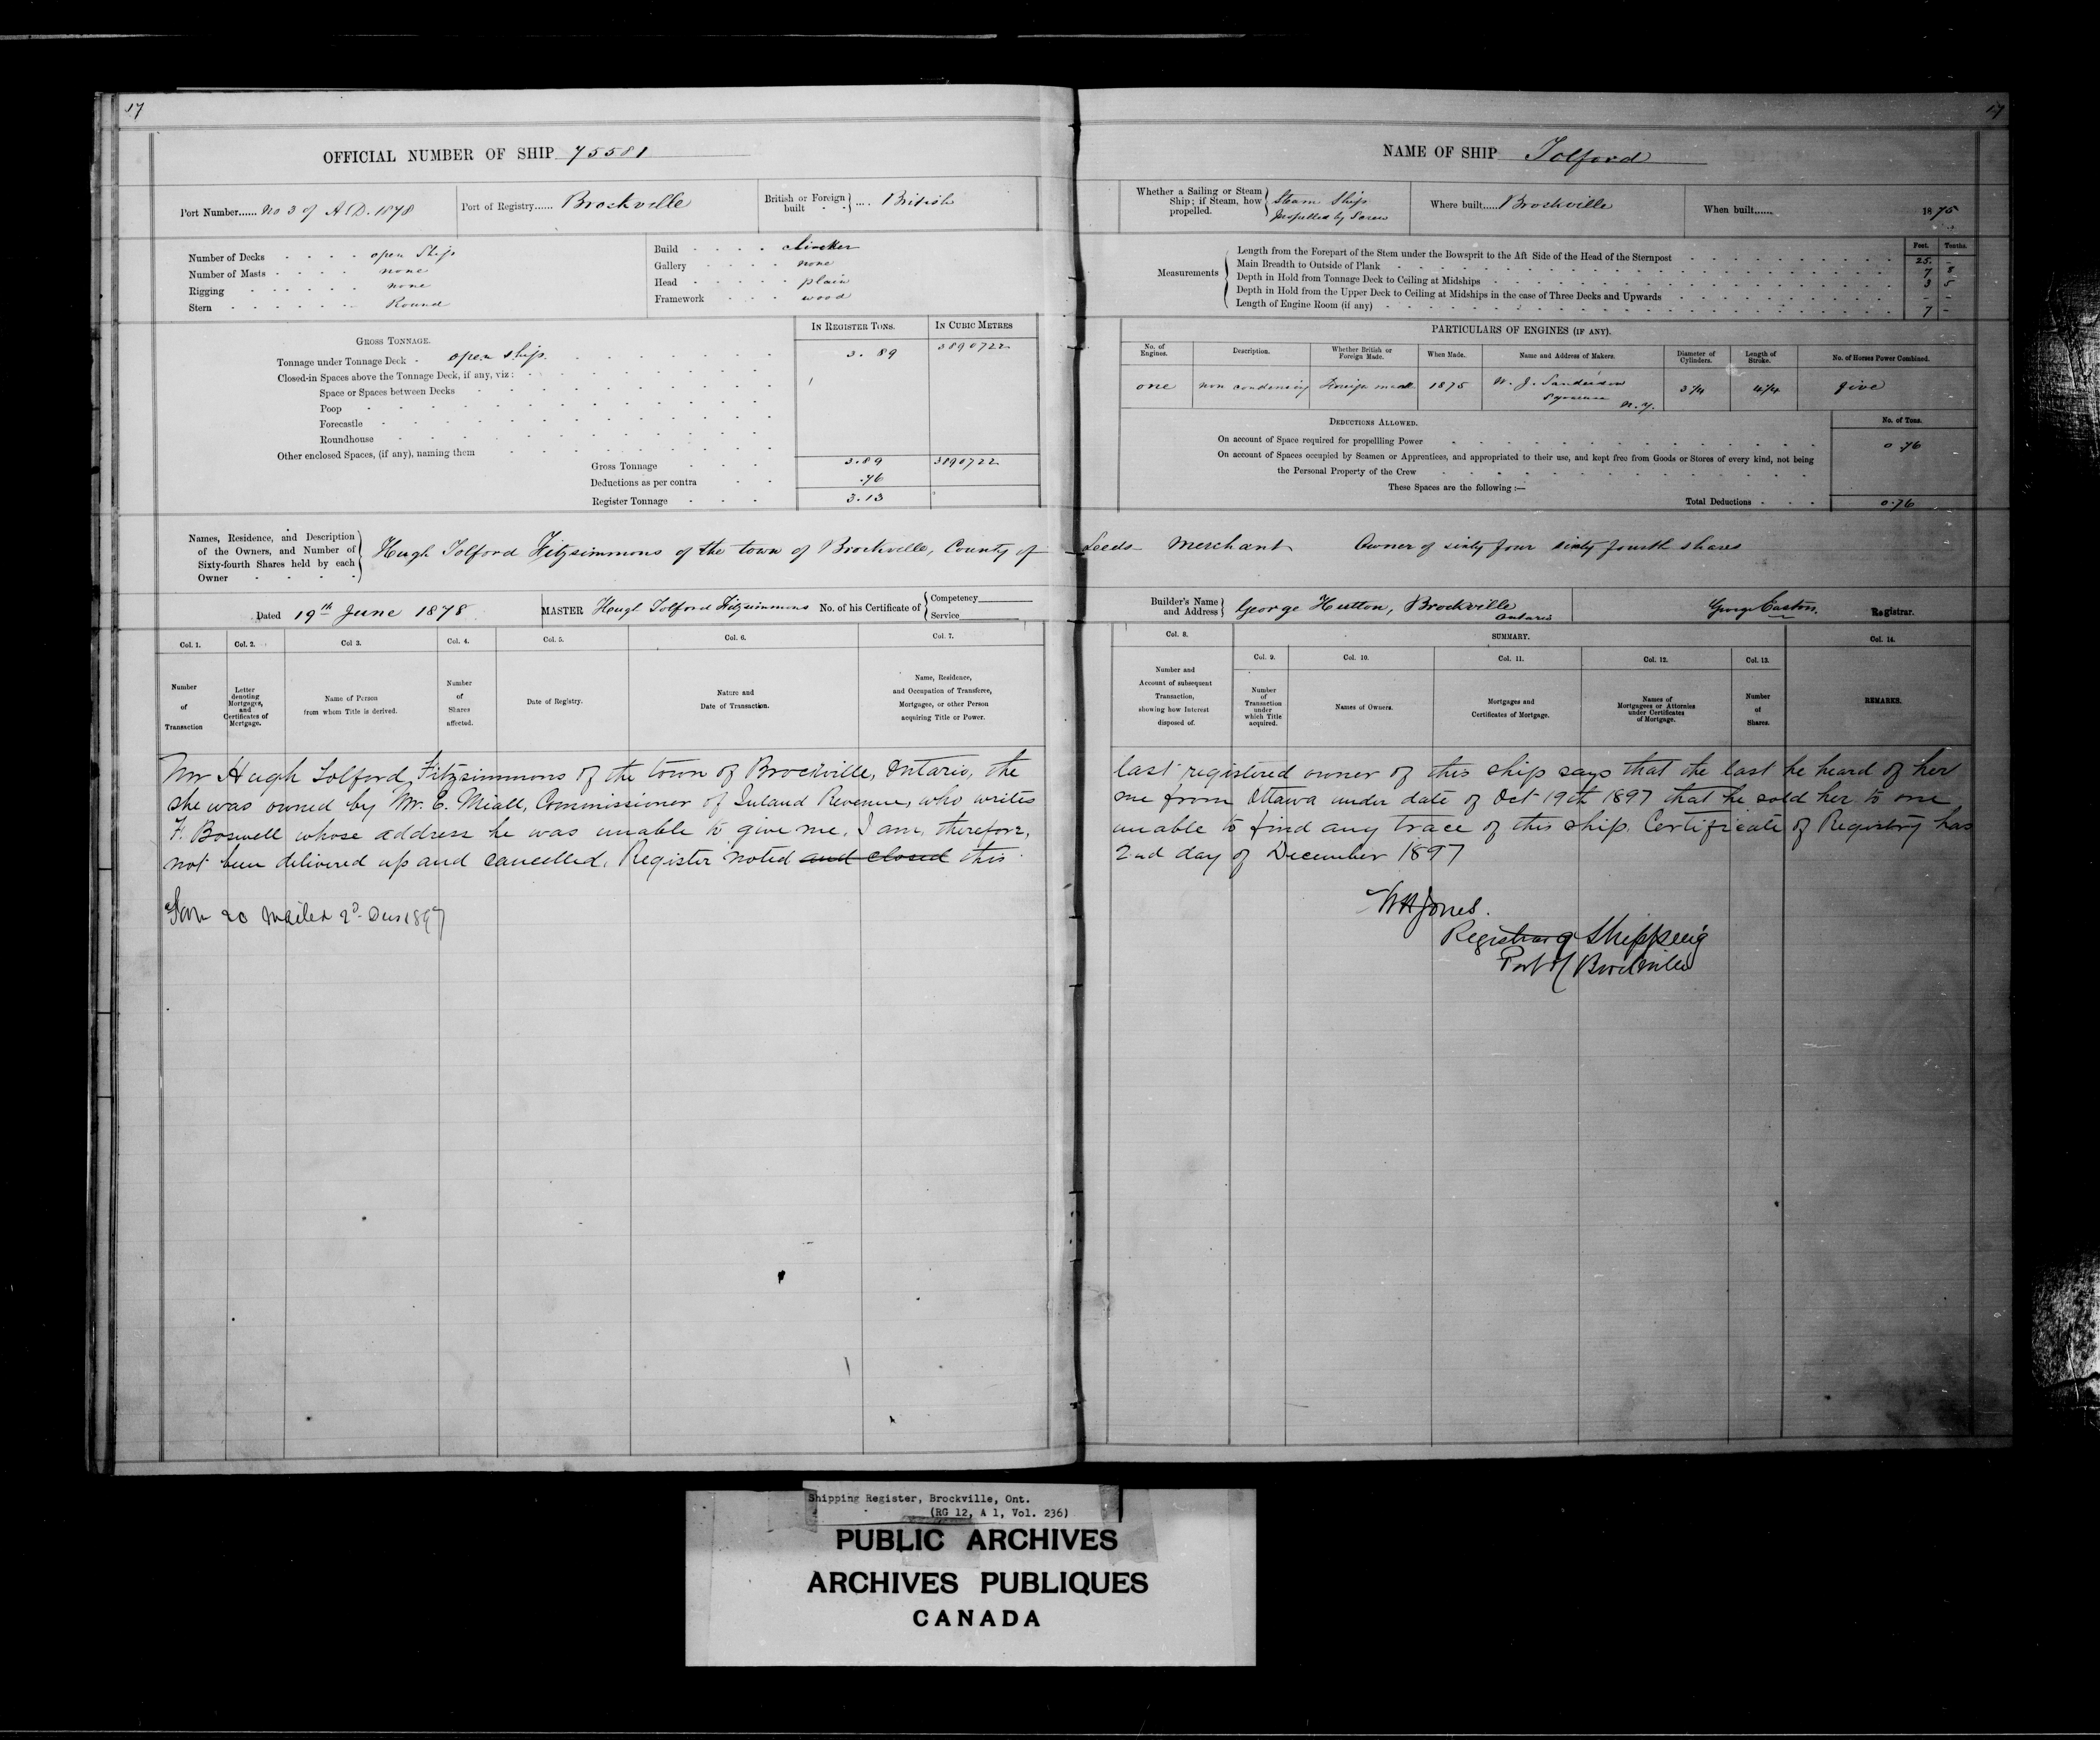 17
OFFICIAL NUMBER OF SHIP 75581
Port Number...... No 3 of A.D. 1878
Port of Registry...... Brockville
British or Foreign built .... British
Number of Decks open Ship
Number of Masts none
Rigging none
Stern Round
Build clincker
Gallery none
Head plain
Framework wood
GROSS TONNAGE.
IN REGISTER TONS.
IN CUBIC METRES
Tonnage under Tonnage Deck open ship 3.89 3890722
Closed-in Spaces above the Tonnage Deck, if any, viz:
Space or Spaces between Decks
Poop
Forecastle
Roundhouse
Other enclosed Spaces, (if any), naming them
Gross Tonnage 3.89 3890722
Deductions as per contra .76
Register Tonnage 3.13
Names, Residence, and Description
of the Owners, and Number of
Sixty-fourth Shares held by each
Owner
Hugh Tolford Fitzsimmons of the town of Brockville, County of
Dated 19th June 1878
MASTER Hugh Tolford Fitzsimmons No. of his Certificate of
Competency
Service
Col. 1.
Number
of
Transaction
Col. 2.
Letter
denoting
Mortgages,
and
Certificates of
Mortgage.
Col 3.
Name of Person
from whom Title is derived.
Col. 4.
Number
of
Shares
affected.
Col. 5.
Date of Registry.
Col. 6.
Nature and
Date of Transaction.
Col. 7.
Name, Residence,
and Occupation of Transferee,
Mortgagee, or other Person
acquiring Title or Power.
Mr Hugh Tolford Fitzsimmons of the town of Brockville, Ontario, the
she was owned by Mr. E. Miall, Commissioner of Inland Revenue, who writes
F. Boswell whose address he was unable to give me. I am, therefore,
not been delivered up and cancelled. Register noted and closed this
20 mailed 2d Dec 1897
17
NAME OF SHIP Tolford
Whether a Sailing or Steam
Ship; if Steam, how
propelled.
Steam Ship
propelled by Screw
Where built..... Brockville
When built...... 1875
Measurements
Feet. Tenths.
Length from the Forepart of the Stem under the Bowsprit to the Aft Side of the Head of the Sternpost 25. -
Main Breadth to Outside of Plank 7 8
Depth in Hold from Tonnage Deck to Ceiling at Midships 3 5
Depth in Hold from the Upper Deck to Ceiling at Midships in the case of Three Decks and Upwards - -
Length of Engine Room (if any) 7 -
PARTICULARS OF ENGINES (IF ANY).
No. of
Engines.
Description.
Whether British or
Foreign Made.
When Made.
Name and Address of Makers.
Diameter of
Cylinders.
Length of
Stroke.
No. of Horses Power Combined.
one non condensing Foreign made 1875 W. J. Sanderson 3¾ 4¼ five
Syracuse N.Y.
DEDUCTIONS ALLOWED.
No. of Tons.
On account of Space required for propellling Power 0.76
On account of Spaces occupied by Seamen or Apprentices, and appropriated to their use, and kept free from Goods or Stores of every kind, not being
the Personal Property of the Crew
These Spaces are the following :—
Total Deductions 0.76
Leeds Merchant Owner of sixty four sixty fourth shares
Builder's Name
and Address
George Hutton, Brockville
Ontario
George Easton. Registrar.
Col. 8.
Number and
Account of subsequent
Transaction,
showing how Interest
disposed of.
SUMMARY.
Col. 9.
Number
of
Transaction
under
which Title
acquired.
Col. 10.
Names of Owners.
Col. 11.
Mortgages and
Certificates of Mortgage.
Col. 12.
Names of
Mortgagees or Attornies
under Certificates
of Mortgage.
Col. 13.
Number
of
Shares.
Col. 14.
REMARKS.
last registered owner of this ship says that the last he heard of her
me from Ottawa under date of Oct 19th 1897 that he sold her to one
unable to find any trace of this ship. Certificate of Registry has
2nd day of December 1897
WH Jones.
Registrar of Shipping
Port of Brockville
Shipping Register, Brockville, Ont.
(RG 12, A 1, Vol. 236)
PUBLIC ARCHIVES
ARCHIVES PUBLIQUES
CANADA